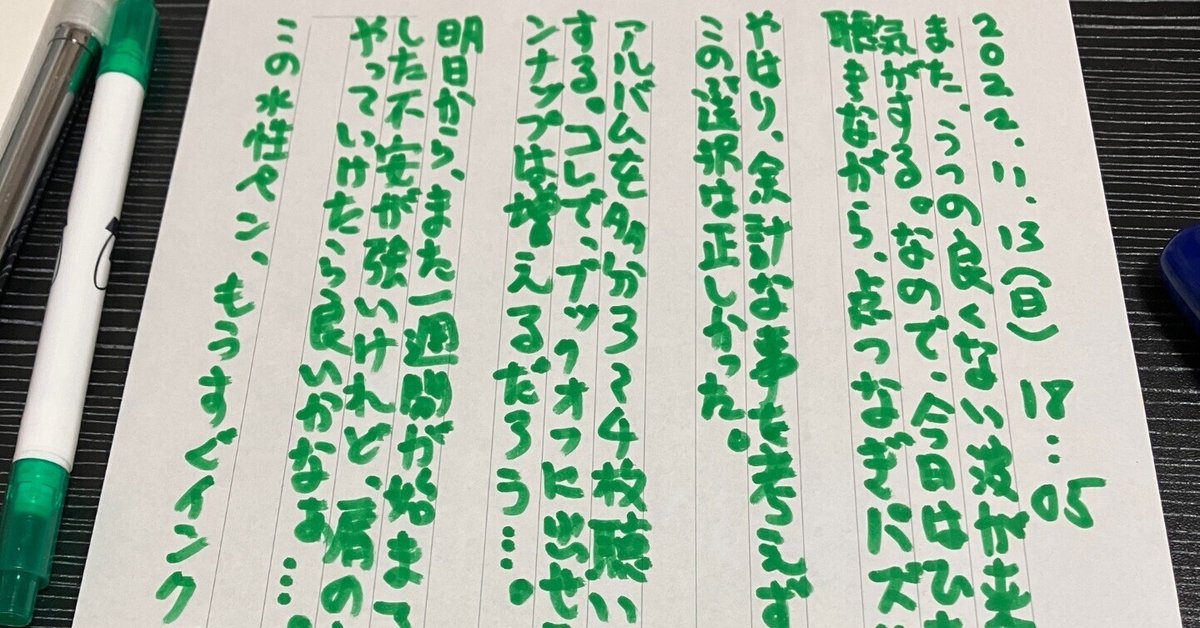 2022.11.13(日) 18:05
また、うつの良くない波が来
気がする。なので、今日はひ
聴きながら、点つなぎパズ
やはり、余計な事を考えず
この選択は正しかった。
アルバムを多分3〜4枚聴い
する。コレで、ブックオフに出せ
ンナップは増えるだろう…。
明日から、また一週間が始まって
した不安が強いけれど、肩の
やっていけたら良いかなぁ…。
この水性ペン、もうすぐインク